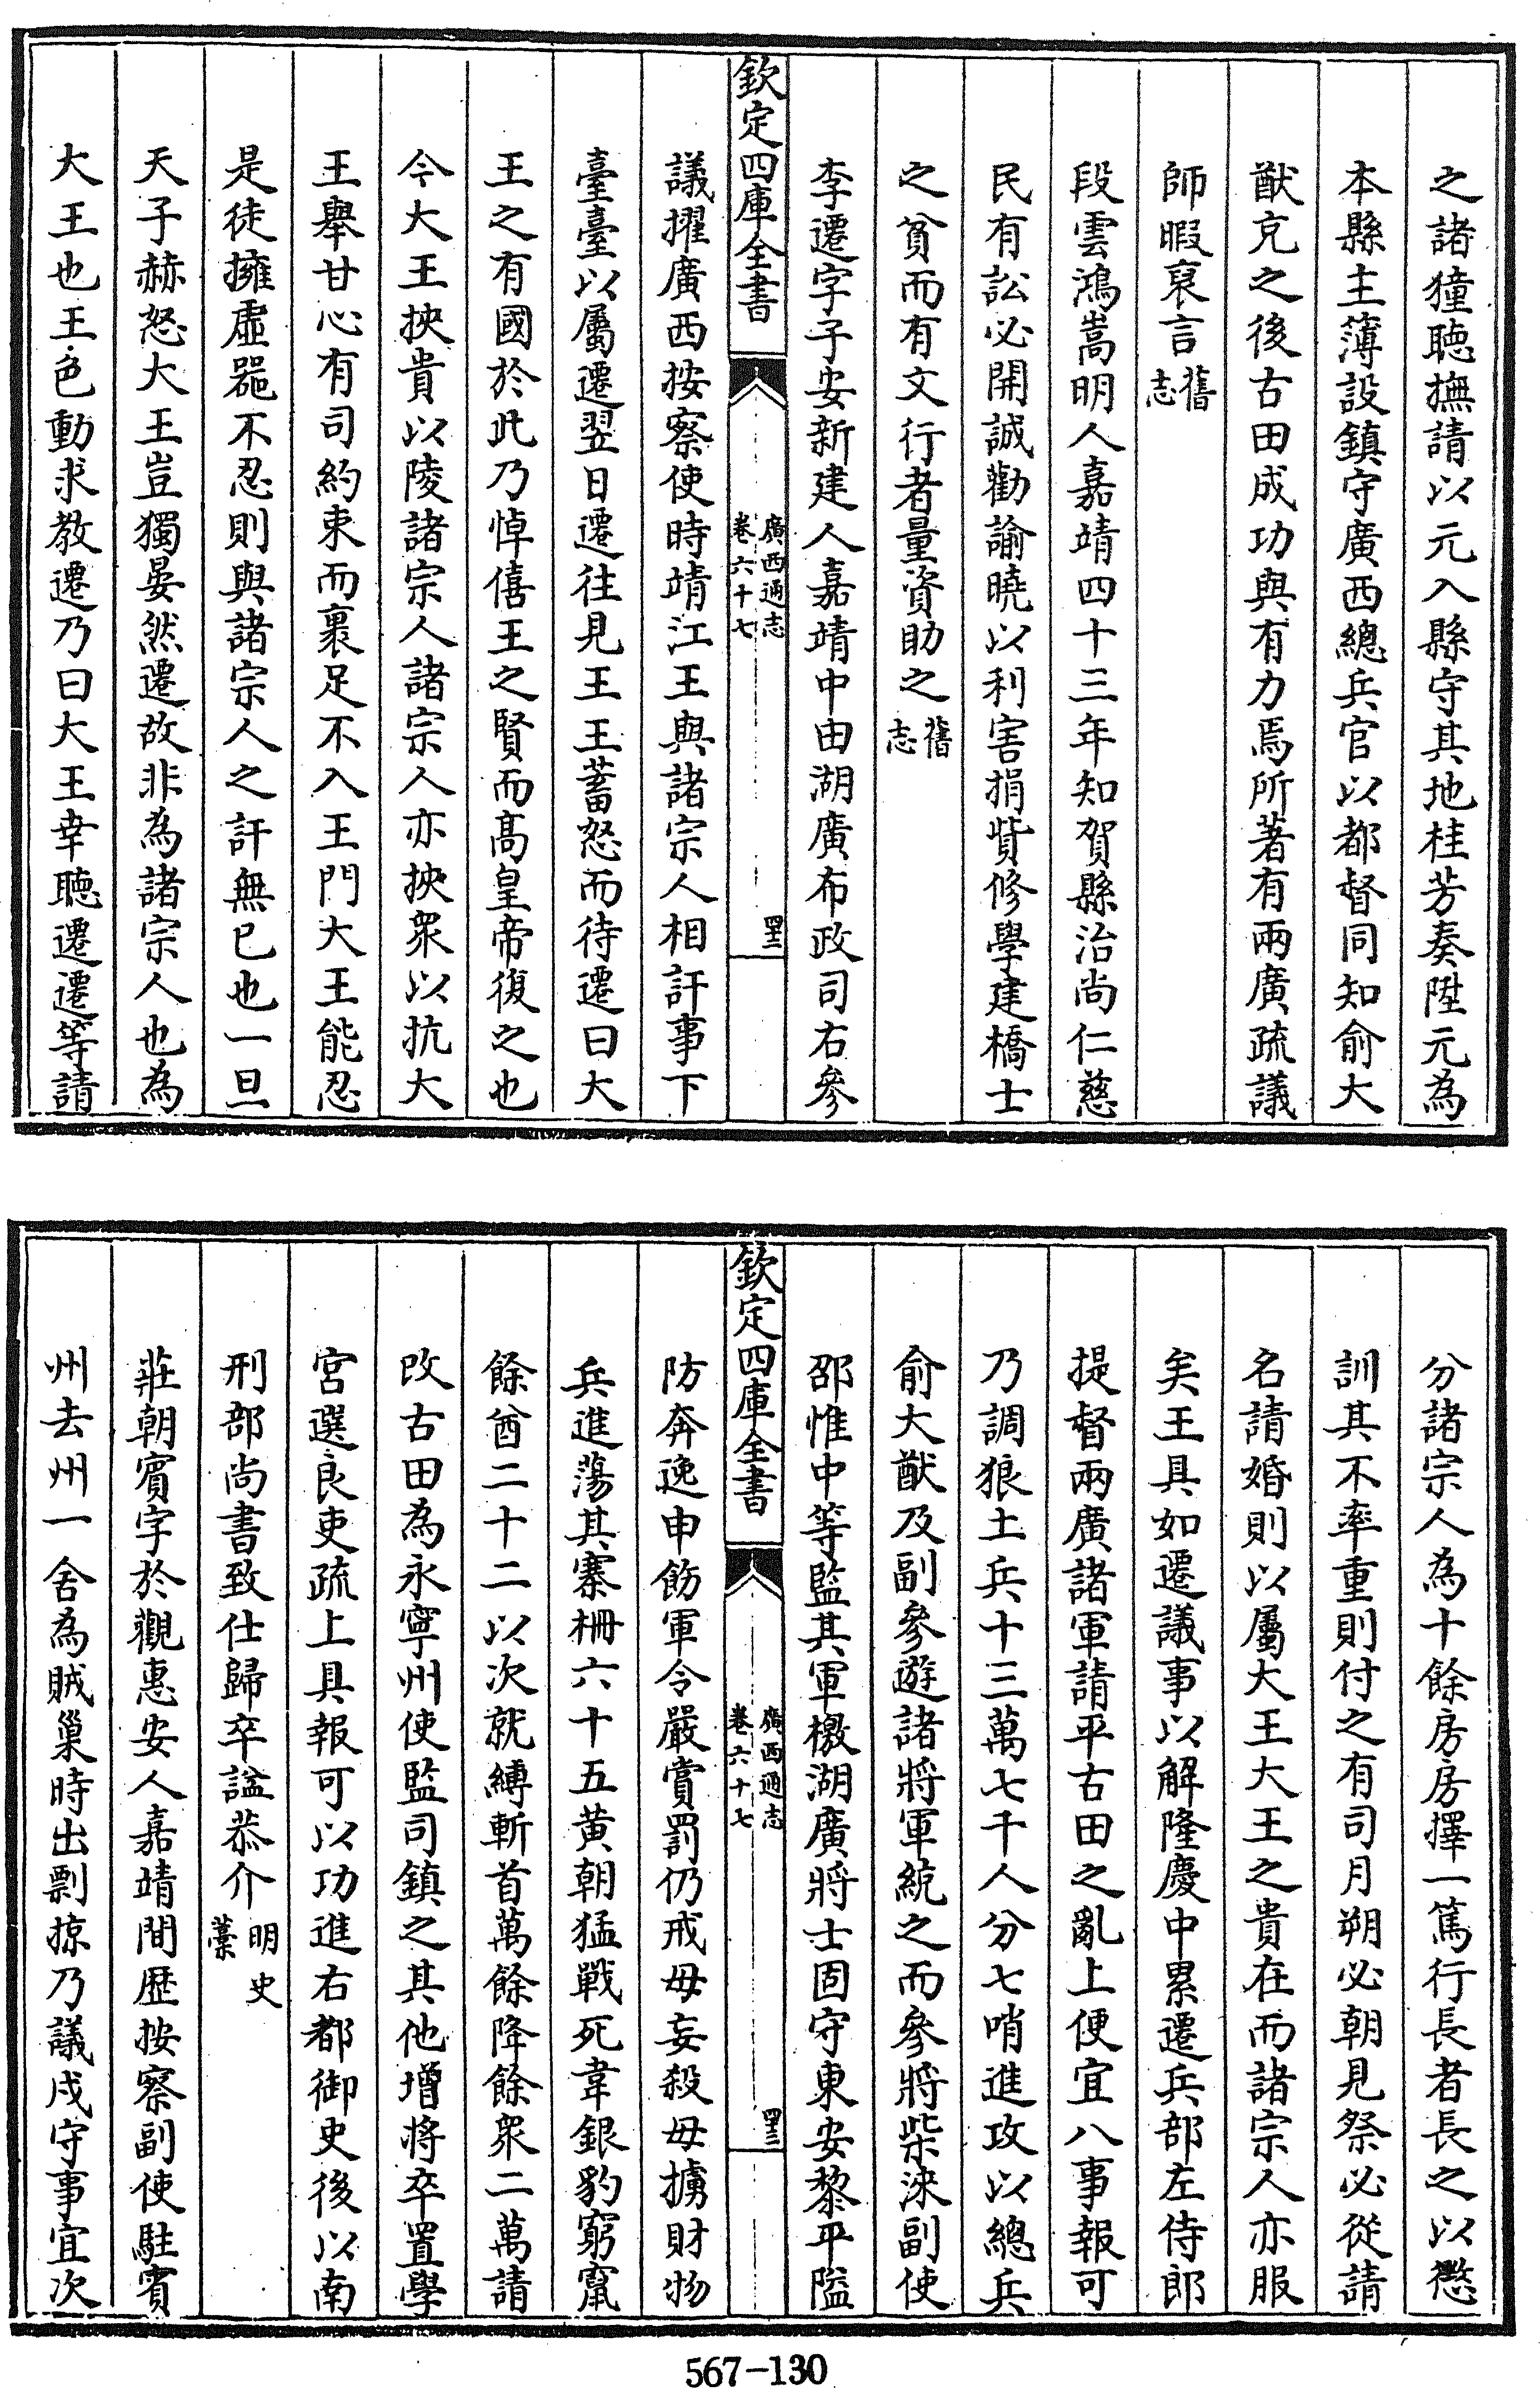 之諸獞聴撫請以元入縣守其地桂芳奏陞元為
本縣主薄設鎮守廣西總兵官以都督同知俞大
猷克之後古田成功與有力焉所著有兩廣疏議
師暇裒言舊志
段雲鴻嵩明人嘉靖四十三年知賀縣治尚仁慈
民有訟必開誠勸諭曉以利害捐貲修學建橋士
之貧而有文行者量資助之舊志
李遷字子安新建人嘉靖中由湖廣布政司右參
欽定四庫全書
廣西通志
卷六十七
議擢廣西按察使時靖江王與諸宗人相訐事下
臺臺以屬遷翌日遷往見王王蓄怒而待遷曰大
王之有國於此乃悼僖王之賢而髙皇帝復之也
今大王挾貴以陵諸宗人諸宗人亦挾衆以抗大
王舉甘心有司約束而裹足不入王門大王能忍
是徒擁虛器不忍則與諸宗人之訐無已也一旦
天子赫怒大王豈獨晏然遷故非為諸宗人也為
大王也王色動求教遷乃曰大王幸聴遷遷等請
分諸宗人為十餘房房擇一篤行長者長之以懲
訓其不率重則付之有司月朔必朝見祭必從請
名請婚則以屬大王大王之貴在而諸宗人亦服
矣王具如遷議事以解隆慶中累遷兵部左侍郎
提督兩廣諸軍請平古田之亂上便宜八事報可
乃調狼土兵十三萬七千人分七哨進攻以總兵
俞大猷及副參遊諸將軍統之而參將柴淶副使
邵惟中等監其軍檄湖廣將士固守東安黎平隘
欽定四庫全書
廣西通志
卷六十七
防奔逸申飭軍令嚴賞罰仍戒毋妄殺毋擄財物
兵進蕩其寨柵六十五黄朝猛戰死韋銀豹窮竄
餘酋二十二以次就縛斬首萬餘降餘衆二萬請
改古田為永寧州使監司鎮之其他增將卒置學
宮選良吏疏上具報可以功進右都御史後以南
刑部尚書致仕歸卒諡恭介明史藁
莊朝賓字於觀惠安人嘉靖間歴按察副使駐賓
州去州一舍為賊巢時出剽掠乃議戍守事宜次
567-130